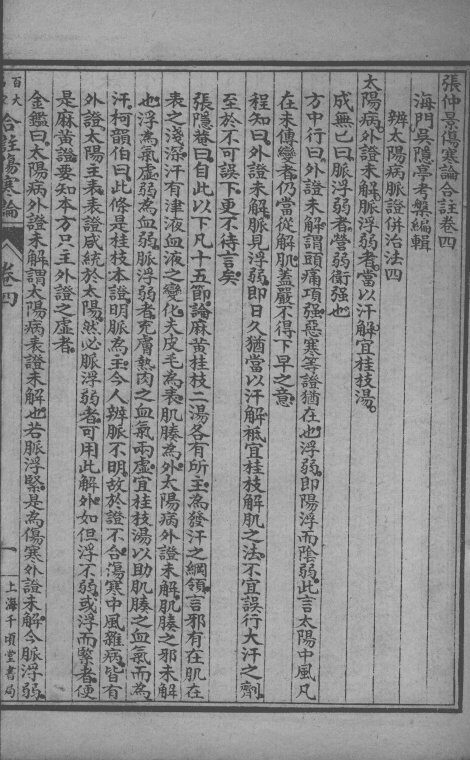 張仲景傷寒論合註卷四
海門吳隱亭考槃編輯
辨太陽病脈證併治法四
太陽病外證未解脈浮弱者當以汗解宜桂枝湯。
成無已曰脈浮弱者營弱衛强也
方中行曰外證未解謂頭痛項强惡寒等證猶在也浮弱即陽浮而陰弱此言太陽中風凡
在未傳變者仍當從解肌蓋嚴不得下早之意
程知曰外證未解脈見浮弱即日久猶當以汗解祗宜桂枝解肌之法不宜誤行大汗之劑
至於不可誤下更不待言矣
張隱菴曰自此以下凡十五節論麻黄桂枝二湯各有所主為發汗之綱領言邪有在肌在
表之淺深汗有津液血液之變化夫皮毛為表肌腠為外太陽病外證未解肌腠之邪未解
也浮為氣虛弱為血弱脈浮弱者充膚熱肉之血氣兩虛宜桂枝湯以助肌腠之血氣而為
汗柯韻伯曰此條是桂枝本證明脈為主今人辨脈不明故於證不合傷寒中風雜病皆有
外證太陽主表表證咸統於太陽然必脈浮弱者可用此解外如但浮不弱或浮而緊者便
是麻黃證要知本方只主外證之虛者
金鑑曰太陽病外證未解謂太陽病表證未解也若脈浮緊是為傷寒外證未解今脈浮弱
百大
合註傷寒論
卷四
一
上海千頃堂書局